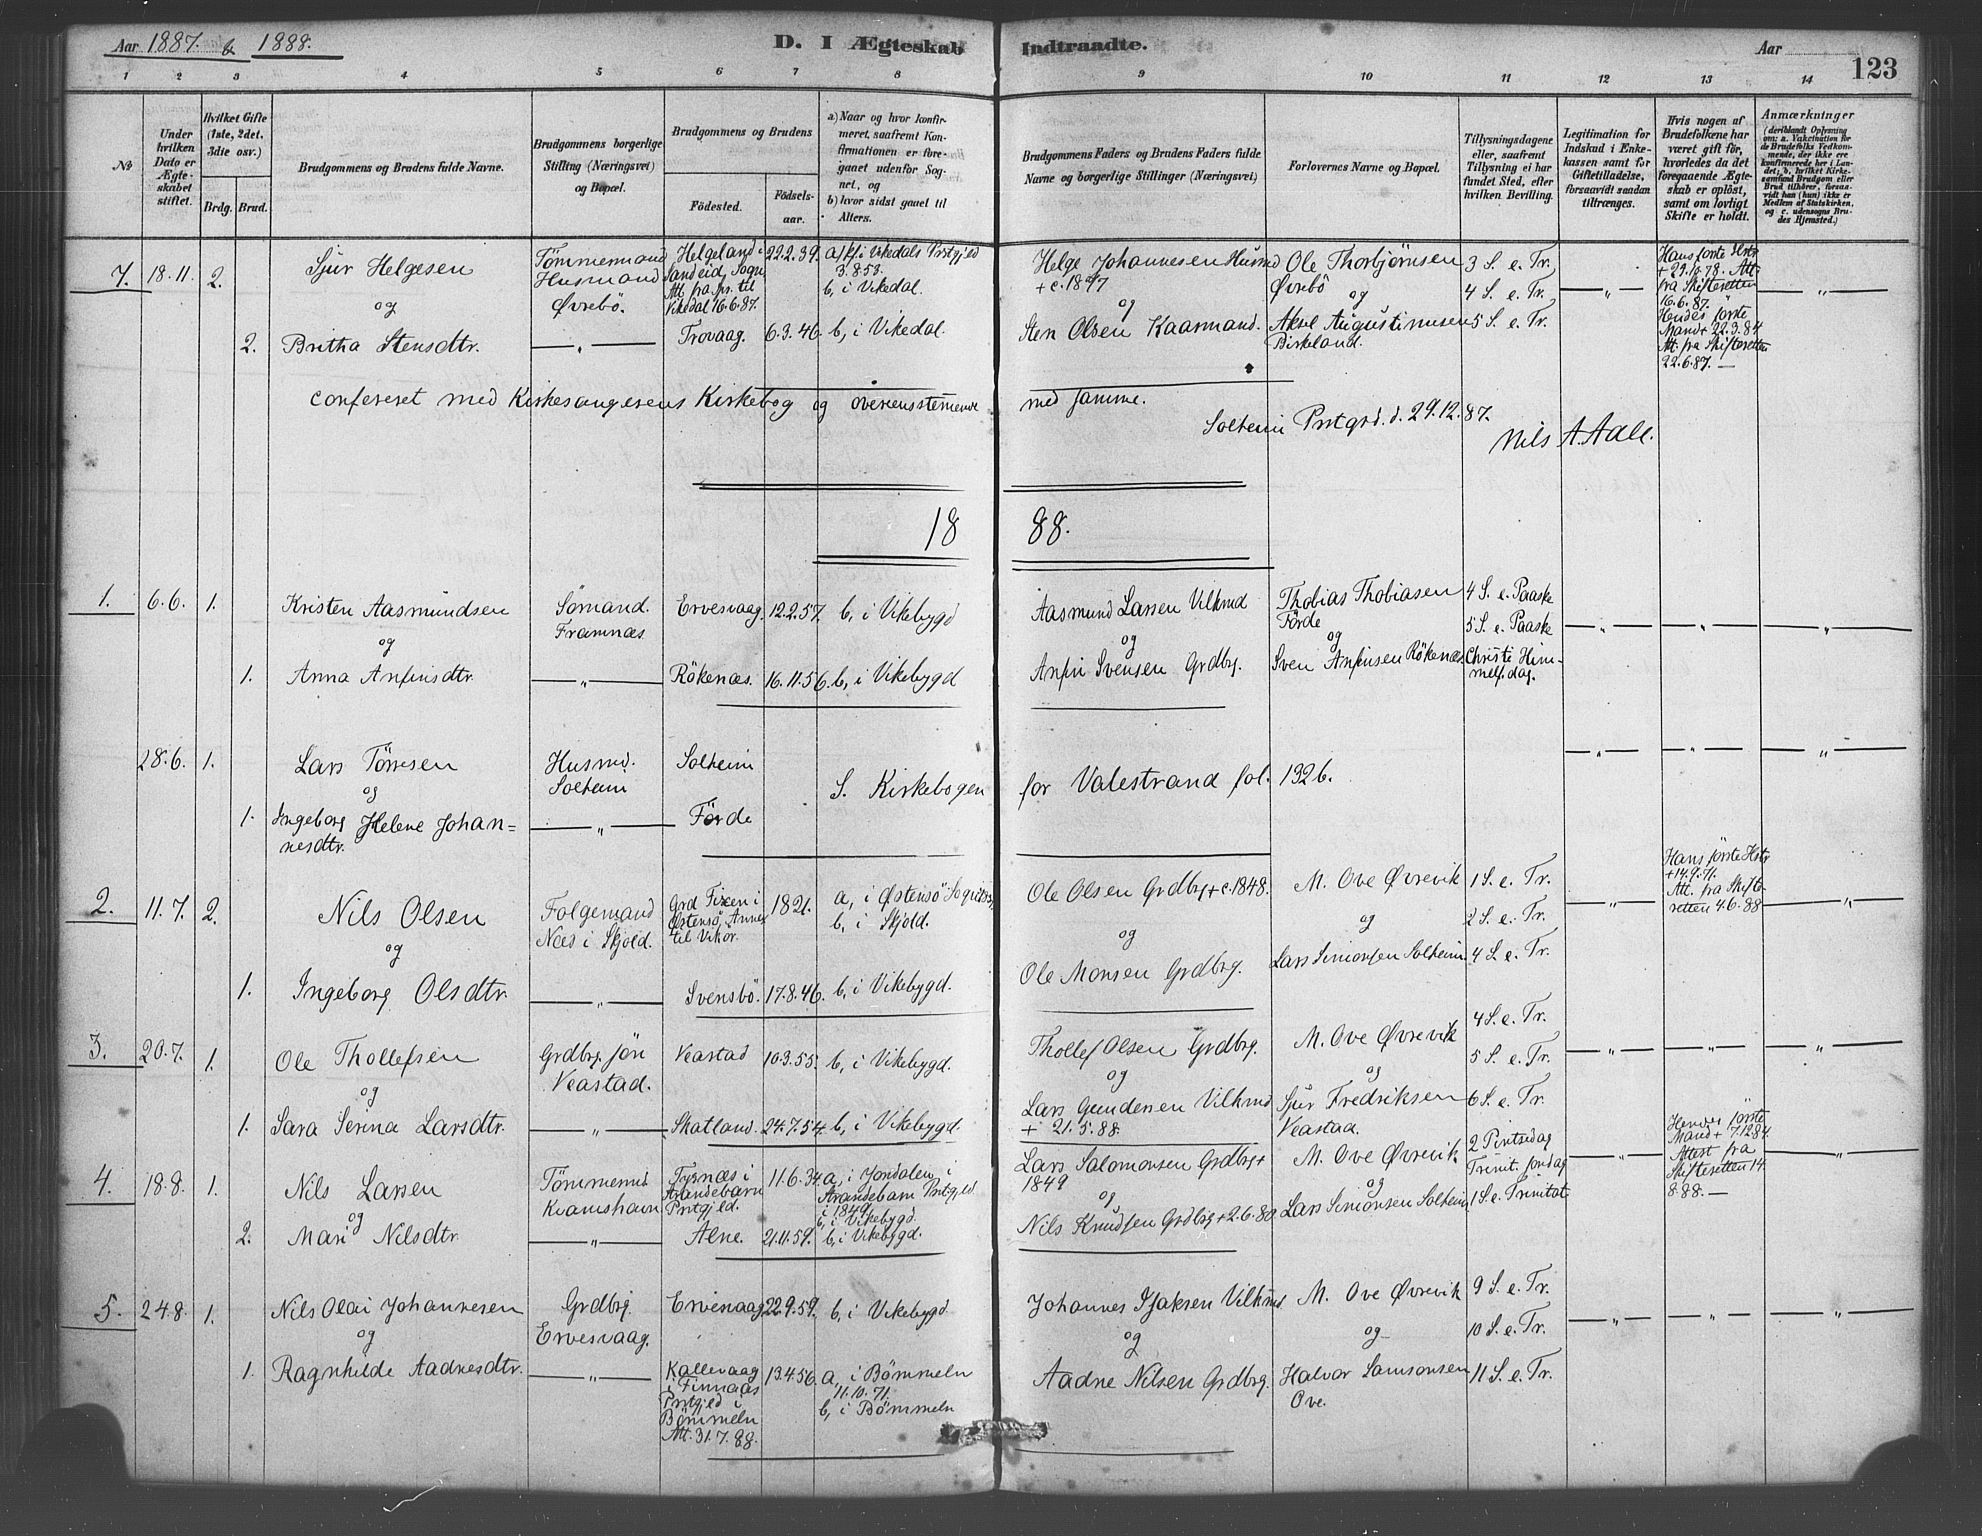 Aar 1887. & 1888.
D. I Ægteskab Indtraadte.
Aar
123
1 2 3 4 5 6 7 8 9 10 11 12 13 14
No
Under hvilken Dato er Ægteskabet stiftet.
Hvilket Gifte (1ste, 2det, 3die osv.)
Brdg. Brud.
Brudgommens og Brudens fulde Navne.
Brudgommens borgerlige Stilling (Næringsvei) og Bopæl.
Brudgommens og Brudens
Fødested.
Fødselsaar.
a) Naar og hvor konfirmeret, saafremt Konfirmationen er foregaaet udenfor Sognet, og
b) hvor sidst gaaet til Alters.
Brudgommens Faders og Brudens Faders fulde Navne og borgerlige Stillinger (Næringsvei)
Forlovernes Navne og Bopæl.
Tillysningsdagene eller, saafremt Tillysning ei har fundet Sted, efter hvilken Bevilling.
Legitimation for Indskud i Enkekassen samt for Giftetilladelse, forsaavidt saadan tiltrænges.
Hvis nogen af Brudefolkene har været gift før, hvorledes da det foregaaende Ægteskab er opløst, samt om lovligt Skifte er holdt.
Anmærkninger
(deriblandt Oplysning om: a. Vaccination for de Brudefolks Vedkommende, der ikke ere konfirmerede her i Landet; b. hvilket Kirkesamfund Brudgom eller Brud tilhører, forsaavidt han (hun) ikke er Medlem af Statskirken, og c. udensogns Brudes Hjemsted.)
7. 18.11. 2. Sjur Helgesen
og
Tømmermand
Husmand
Øvrebö.
Helgeland i
Sandeid Sogn
Att. fra pr. til
Vikedal 16.6.87.
22.2.39.
a, kf. i Vikedals Prstgjeld
3.8.53.
b, i Vikedal.
Helge Johannesen Husmd
+ c. 1847
og
Ole Thorbjørnsen
Øvrebö
og
3 S. e. Tr.
4 S. e. Tr.
— „ —
Hans første Hstr
+ 29.10.78. Att.
fra Skifteretten
16.6.87. „
Hendes første
Mand + 22.3.84
Att. fra Skifteretten
22.6.87. —
— „ —
2. Britha Stensdtr.
— „ —
Trovaag. 6.3.46. b, i Vikedal.
Sten Olsen Kaarmand.
Aksel Augustinusen
Birkeland.
5 S. e. Tr.
confereret med Kirkesangerens Kirkebog og overensstemmende med samme.
Solheim Prstgrd. d. 29.12.87.
Nils A. Aall.
18 88.
1. 6.6. 1. Kristen Aasmundsen
og
Sømand.
Framnæs
Ervesvaag. 12.2.57. b, i Vikebygd
Aasmund Larsen Vilkmd
og
Thobias Thobiasen
Førde
og
4 S. e. Paaske
5 S. e. Paaske
— „ — — „ — — „ —
1. Anna Anfinsdtr.
— „ —
Rökenæs. 16.11.56. b, i Vikebygd
Anfin Svensen Grdbrg.
Sven Anfinsen Rökenæs.
Christi Himmelf.dag.
28.6. 1. Lars Törresen
og
Husmd.
Solheim
Solheim
S. Kirkebogen for Valestrand fol. 132 b.
— „ — — „ — — „ —
1. Ingeborg Helene Johannesdtr.
— „ —
Förde
2. 11.7. 2. Nils Olsen
og
Folgemand
Næs i Skjold.
Grd Fixen i
Østensö, Annex
til Vikör.
1821.
a, i Østensö Sogn
b, i Skjold.
Ole Olsen Grdbrg + c. 1848.
og
M. Ove Øvrevik
og
1 S. e. Tr.
2 S. e. Tr.
— „ —
Hans første Hstr
+ 14.9.71.
Att. fra Skifteretten 4.6.88
— „ —
1. Ingeborg Olsdtr.
— „ —
Svensbö. 17.8.46. b, i Vikebygd.
Ole Monsen Grdbrg.
Lars Simonsen Solheim.
4 S. e. Tr.
3. 20.7. 1. Ole Thollefsen
og
Grdbrg. sön
Veastad.
Veastad 10.3.55. b, i Vikebygd.
Thollef Olsen Grdbrg.
og
M. Ove Øvrevik
og
4 S. e. Tr.
5 S. e. Tr.
— „ — — „ — — „ —
1. Sara Serina Larsdtr.
— „ —
Skatland. 24.7.54. b, i Vikebygd.
Lars Gundersen Vilkmd
+ 21.5.88.
Sjur Fredriksen
Veastad.
6 S. e. Tr.
4. 18.8. 1. Nils Larsen
og
Tömmermd
Kvamshavn
Fyrnæs i
Strandebarm
Prstgjeld.
11.6.34.
a, i Jondalen i
Strandebarm Prstgjeld.
i 1849.
b, i Vikebygd.
Lars Salomonsen Grdbrg +
1849
og
M. Ove Øvrevik
og
2 Pintsedag
Trinit. søndag
— „ —
Hendes første
Mand + 7.12.84.
Attest fra
Skifteretten 14.
8.88. —
— „ —
2. Mari Nilsdtr.
— „ —
Alne. 21.11.59. b, i Vikebygd.
Nils Knudsen Grdbrg + 2.6.80.
Lars Simonsen Solheim
1 S. e. Trinitat.
5. 24.8. 1. Nils Olai Johannesen
og
Grdbrg.
Ervesvaag.
Ervesvaag 22.9.59. b, i Vikebygd
Johannes Isaksen Vilkmd.
og
M. Ove Øvrevik
og
9 S. e. Tr.
10 S. e. Tr.
— „ — — „ — — „ —
1. Ragnhilde Aadnesdtr.
— „ —
Kallevaag
i Finnaas
Prstgjeld i
Bömmeln
Att. 31.7.88.
13.4.56.
a, i Bömmeln
11.10.71.
b, i Bömmeln
Aadne Nilsen Grdbrg.
Halvor Samsonsen
Ove.
11 S. e. Tr.